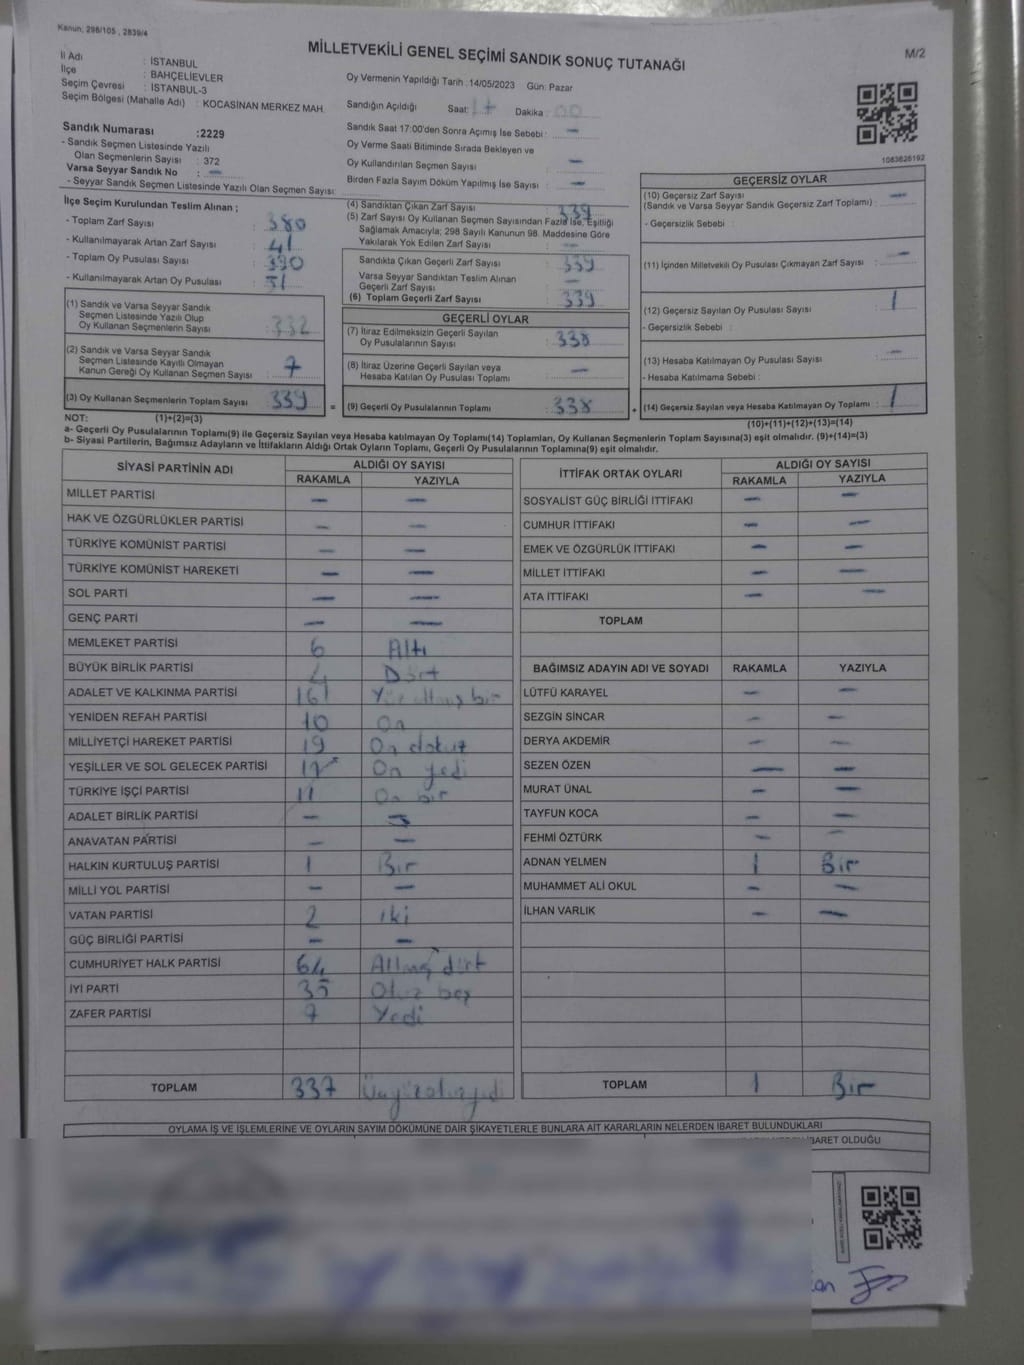 Kanun; 298/105 , 2839/4
MİLLETVEKİLİ GENEL SEÇİMİ SANDIK SONUÇ TUTANAĞI
M/2
İl Adı : İSTANBUL
İlçe : BAHÇELİEVLER
Seçim Çevresi : İSTANBUL-3
Seçim Bölgesi (Mahalle Adı) : KOCASİNAN MERKEZ MAH.
Oy Vermenin Yapıldığı Tarih :14/05/2023 Gün: Pazar
Sandığın Açıldığı Saat: 17 Dakika : 00
Sandık Numarası :2229
- Sandık Seçmen Listesinde Yazılı
Olan Seçmenlerin Sayısı : 372
Varsa Seyyar Sandık No : —
- Seyyar Sandık Seçmen Listesinde Yazılı Olan Seçmen Sayısı:
Sandık Saat 17:00'den Sonra Açımış İse Sebebi : —
Oy Verme Saati Bitiminde Sırada Bekleyen ve
Oy Kullandırılan Seçmen Sayısı —
Birden Fazla Sayım Döküm Yapılmış İse Sayısı : —
1083626192
İlçe Seçim Kurulundan Teslim Alınan ;
- Toplam Zarf Sayısı : 380
- Kullanılmayarak Artan Zarf Sayısı : 41
- Toplam Oy Pusulası Sayısı : 390
- Kullanılmayarak Artan Oy Pusulası : 51
(1) Sandık ve Varsa Seyyar Sandık
Seçmen Listesinde Yazılı Olup
Oy Kullanan Seçmenlerin Sayısı : 332
(2) Sandık ve Varsa Seyyar Sandık
Seçmen Listesinde Kayıtlı Olmayan
Kanun Gereği Oy Kullanan Seçmen Sayısı : 7
(3) Oy Kullanan Seçmenlerin Toplam Sayısı : 339
(4) Sandıktan Çıkan Zarf Sayısı : 339
(5) Zarf Sayısı Oy Kullanan Seçmen Sayısından Fazla İse, Eşitliği
Sağlamak Amacıyla; 298 Sayılı Kanunun 98. Maddesine Göre
Yakılarak Yok Edilen Zarf Sayısı : —
Sandıkta Çıkan Geçerli Zarf Sayısı : 339
Varsa Seyyar Sandıktan Teslim Alınan
Geçerli Zarf Sayısı : —
(6) Toplam Geçerli Zarf Sayısı : 339
GEÇERLİ OYLAR
(7) İtiraz Edilmeksizin Geçerli Sayılan
Oy Pusulalarının Sayısı : 338
(8) İtiraz Üzerine Geçerli Sayılan veya
Hesaba Katılan Oy Pusulası Toplamı : —
= (9) Geçerli Oy Pusulalarının Toplamı : 338
GEÇERSİZ OYLAR
(10) Geçersiz Zarf Sayısı
(Sandık ve Varsa Seyyar Sandık Geçersiz Zarf Toplamı) : —
- Geçersizlik Sebebi :
(11) İçinden Milletvekili Oy Pusulası Çıkmayan Zarf Sayısı : —
(12) Geçersiz Sayılan Oy Pusulası Sayısı : 1
- Geçersizlik Sebebi :
(13) Hesaba Katılmayan Oy Pusulası Sayısı : —
- Hesaba Katılmama Sebebi :
+ (14) Geçersiz Sayılan veya Hesaba Katılmayan Oy Toplamı : 1
NOT: (1)+(2)=(3)
(10)+(11)+(12)+(13)=(14)
a- Geçerli Oy Pusulalarının Toplamı(9) ile Geçersiz Sayılan veya Hesaba katılmayan Oy Toplamı(14) Toplamları, Oy Kullanan Seçmenlerin Toplam Sayısına(3) eşit olmalıdır. (9)+(14)=(3)
b- Siyasi Partilerin, Bağımsız Adayların ve İttifakların Aldığı Ortak Oyların Toplamı, Geçerli Oy Pusulalarının Toplamına(9) eşit olmalıdır.
SİYASİ PARTİNİN ADI ALDIĞI OY SAYISI
RAKAMLA YAZIYLA
MİLLET PARTİSİ — —
HAK VE ÖZGÜRLÜKLER PARTİSİ — —
TÜRKİYE KOMÜNİST PARTİSİ — —
TÜRKİYE KOMÜNİST HAREKETİ — —
SOL PARTİ — —
GENÇ PARTİ — —
MEMLEKET PARTİSİ 6 Altı
BÜYÜK BİRLİK PARTİSİ 4 Dört
ADALET VE KALKINMA PARTİSİ 161 Yüz altmış bir
YENİDEN REFAH PARTİSİ 10 On
MİLLİYETÇİ HAREKET PARTİSİ 19 On dokuz
YEŞİLLER VE SOL GELECEK PARTİSİ 17 On yedi
TÜRKİYE İŞÇİ PARTİSİ 11 On bir
ADALET BİRLİK PARTİSİ — —
ANAVATAN PARTİSİ — —
HALKIN KURTULUŞ PARTİSİ 1 Bir
MİLLİ YOL PARTİSİ — —
VATAN PARTİSİ 2 iki
GÜÇ BİRLİĞİ PARTİSİ — —
CUMHURİYET HALK PARTİSİ 64 Altmış dört
İYİ PARTİ 35 Otuz beş
ZAFER PARTİSİ 7 Yedi
TOPLAM 337 Üçyüzotuzyedi
İTTİFAK ORTAK OYLARI ALDIĞI OY SAYISI
RAKAMLA YAZIYLA
SOSYALİST GÜÇ BİRLİĞİ İTTİFAKI — —
CUMHUR İTTİFAKI — —
EMEK VE ÖZGÜRLÜK İTTİFAKI — —
MİLLET İTTİFAKI — —
ATA İTTİFAKI — —
TOPLAM
BAĞIMSIZ ADAYIN ADI VE SOYADI RAKAMLA YAZIYLA
LÜTFÜ KARAYEL — —
SEZGİN SİNCAR — —
DERYA AKDEMİR — —
SEZEN ÖZEN — —
MURAT ÜNAL — —
TAYFUN KOCA — —
FEHMİ ÖZTÜRK — —
ADNAN YELMEN 1 Bir
MUHAMMET ALİ OKUL — —
İLHAN VARLIK — —
TOPLAM 1 Bir
OYLAMA İŞ VE İŞLEMLERİNE VE OYLARIN SAYIM DÖKÜMÜNE DAİR ŞİKAYETLERLE BUNLARA AİT KARARLARIN NELERDEN İBARET BULUNDUKLARI
İBARET OLDUĞU